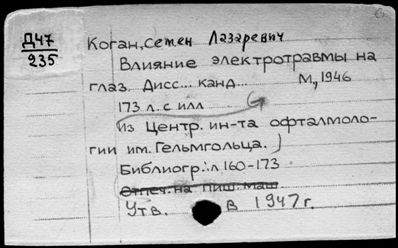 Д47
235
Коган, Семен Лазаревич
Влияние электротравмы на
глаз. Дисс... канд... М., 1946
173 л. с илл
(Из Центр. ин-та офталмоло-
гии им. Гельмгольца.)
Библиогр.: л 160-173
Отпеч. на пиш. маш.
Утв. в 1947 г.